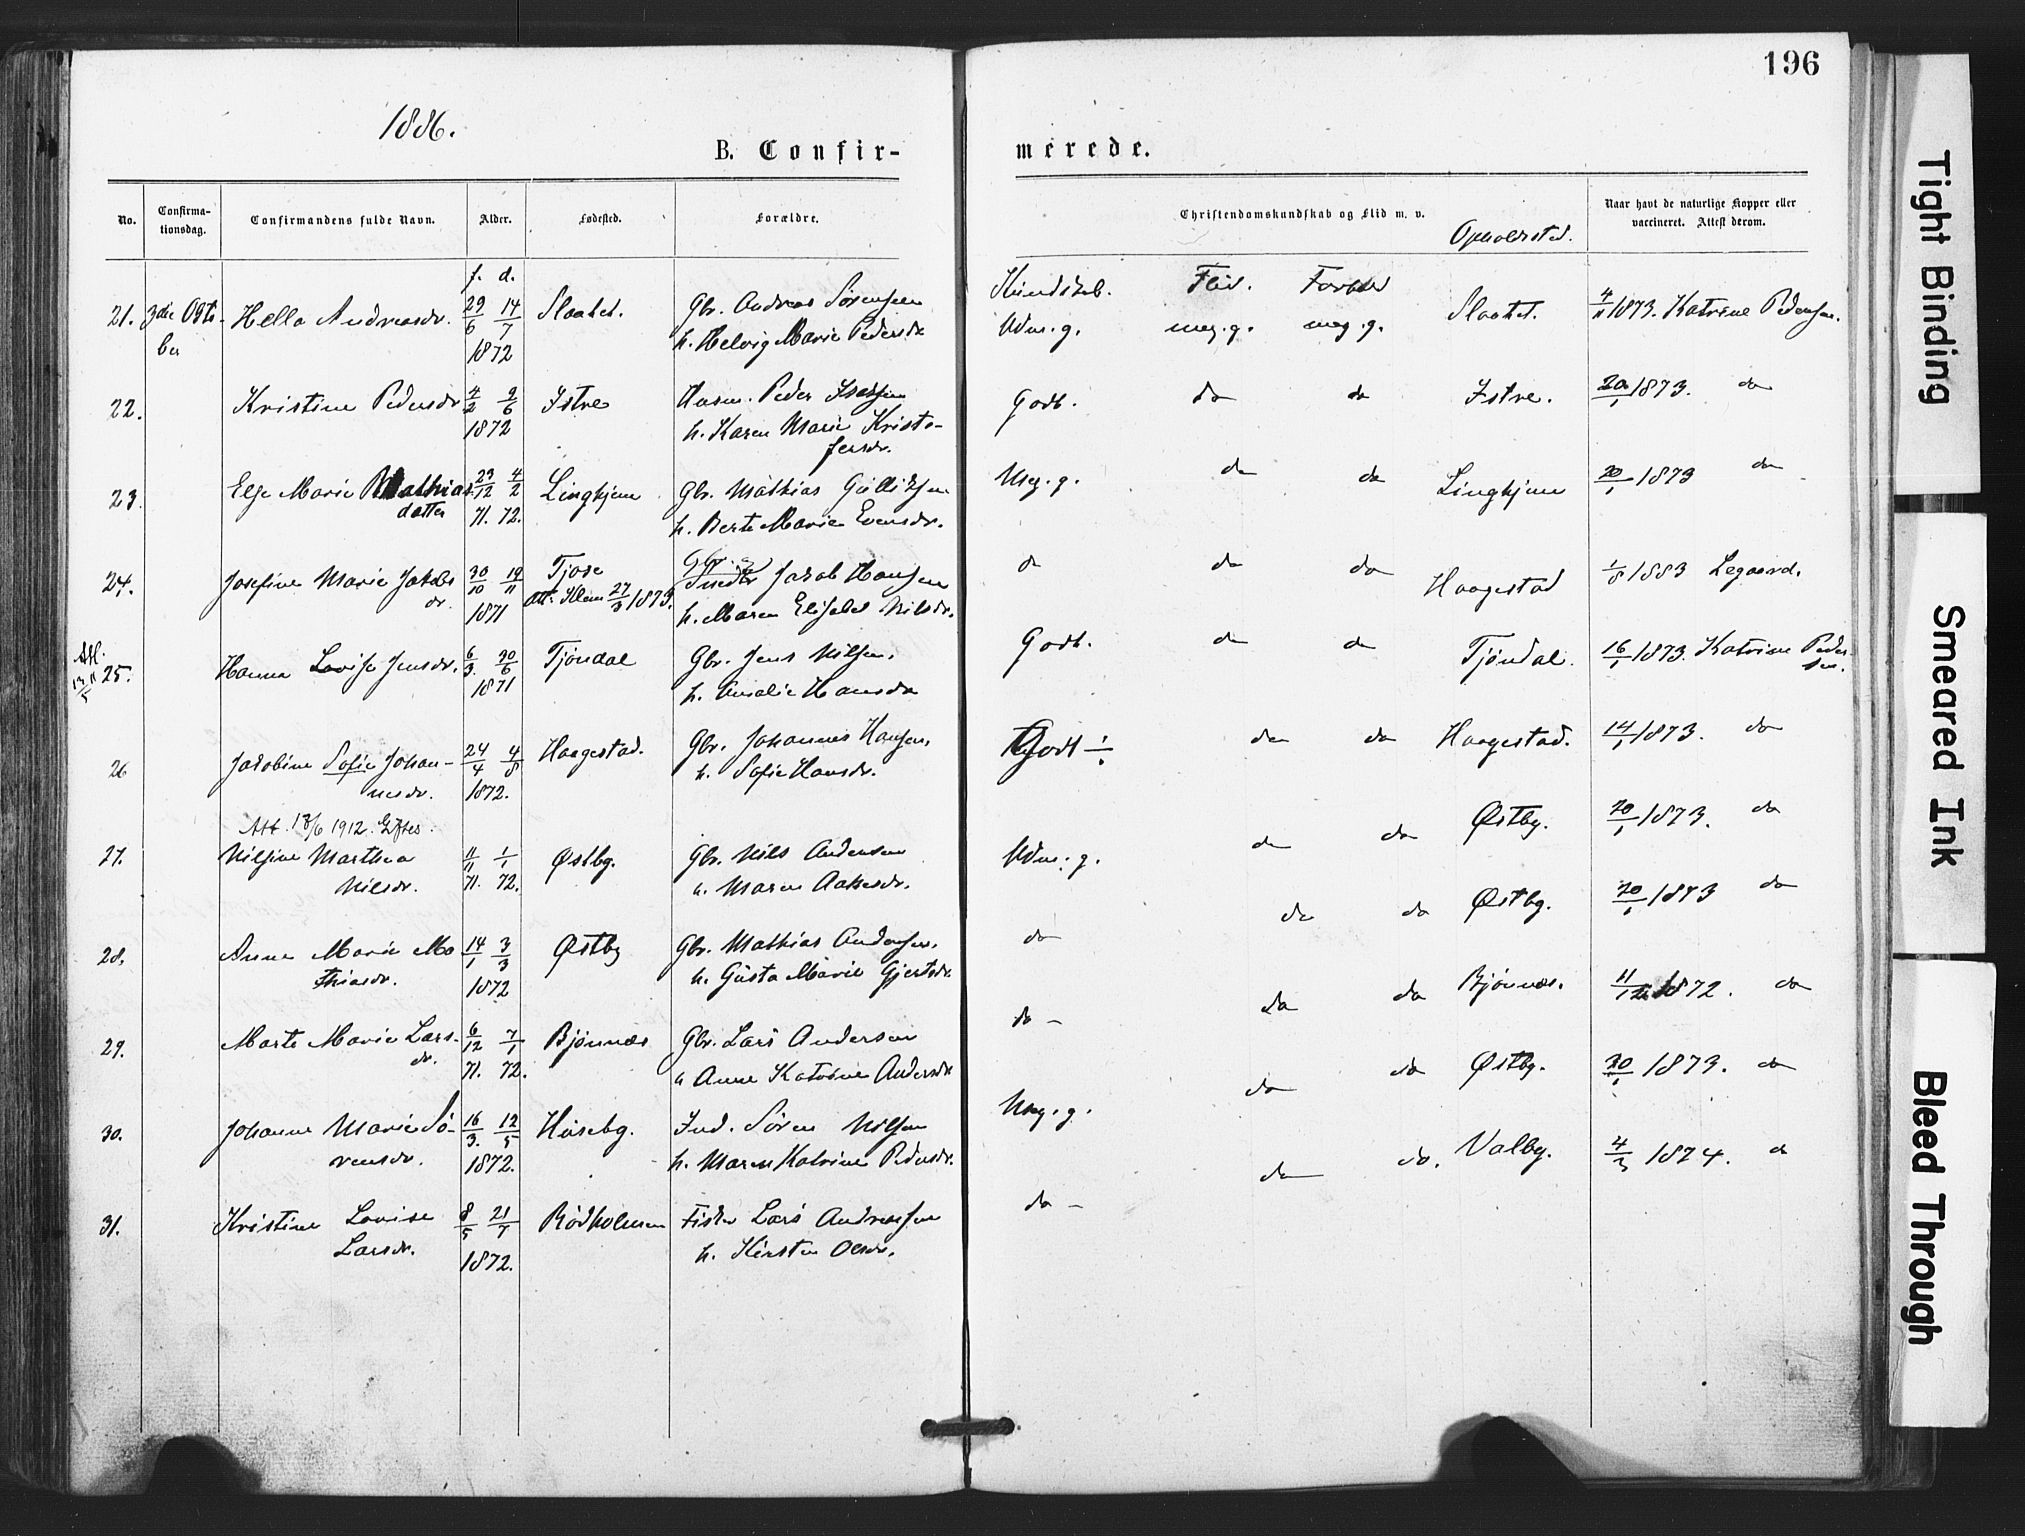 196
1886.
B. Confir-
merede.
No.
Confirma-
tionsdag.
Confirmandens fulde Navn.
Alder.
Fødested.
Forældre.
Christendomskundskab og Flid m. v.
Opholdssted.
Naar havt de naturlige Kopper eller
vaccineret. Attest derom.
f. d.
Kundskab. Flid. Forhold
21. 3die Octo-
ber
Hella Andreasdr.
29/6 14/7
1872
Slaatet.
Gbr. Andreas Sørensen
h. Helvig Marie Pedersdr
Udm. g. meg. g. meg. g. Slaatet. 4/11 1873. Katrine Pedersen.
22. Kristine Pedersdr
4/2 2/6
1872
Istre
Husm. Peder Isaksen
h. Karen Marie Kristo-
fersdr.
Godt. do do Istre. 20/1 1873. do
23. Else Marie Mathias
datter
29/12 4/2
71. 72.
Linghjem
Gbr. Mathias Gulliksen
h. Berte Marie Evensdr.
Meg. g. do do Linghjem 20/1 1873 do
24. Josefine Marie Jakobs
dr.
30/10 19/11
1871
Tjose
Att. Klem 27/3 1873.
Gbr.
Jakob Hansen
h. Maren Elisabet Nilsdr.
do do do Haagestad 1/8 1883 Legaard.
Att.
13/5 11
25. Hanna Lovise Jensdr.
6/3. 30/6
1871
Tjøndal
Gbr. Jens Nilsen.
h. Amalie Hansdr
Godt. do do Tjøndal. 16/1 1873. Katrine Peder-
sen.
26 Jakobine Sofie Johan-
nesdr.
24/4 4/8
1872.
Haagestad.
Gbr. Johannes Hansen,
h. Sofie Hansdr.
Godt ÷ do do Haagestad. 14/1 1873. do
Att. 18/6 1912. Giftes.
27. Nilsine Marthea
Nilsdr.
11/11 1/1
71. 72.
Østby.
Gbr. Nils Andersen
h. Maren Aakesdr.
Udm. g. do do Østby. 20/1 1873. do
28. Anne Marie Ma
thiasdr.
14/1 3/3
1872
Østby
Gbr. Mathias Andersen.
h. Gusta Marie Gjertsdr
do do do Østby. 20/1 1873 do
29. Marte Marie Lars-
dr.
6/12 7/1
71. 72.
Bjønnæs
Gbr. Lars Andersen
h Anne Katrine Andersdr
do - do do Bjønnæs. 11/12 1872. do
30. Johanne Marie Sø-
rensdr.
16/3. 12/5
1872.
Huseby.
Ind. Søren Nilsen
h. Maren Katrine Pedersdr.
Meg. g. do do Østby. 20/1 1873. do
31. Kristine Lovise
Larsdr.
8/5 21/7
1872.
Rødholmen
Fisker Lars Andreassen
h. Kirsten Olsdr.
do - do do. Valby. 4/3 1874. do
Tight Binding
Smeared Ink
Bleed Through